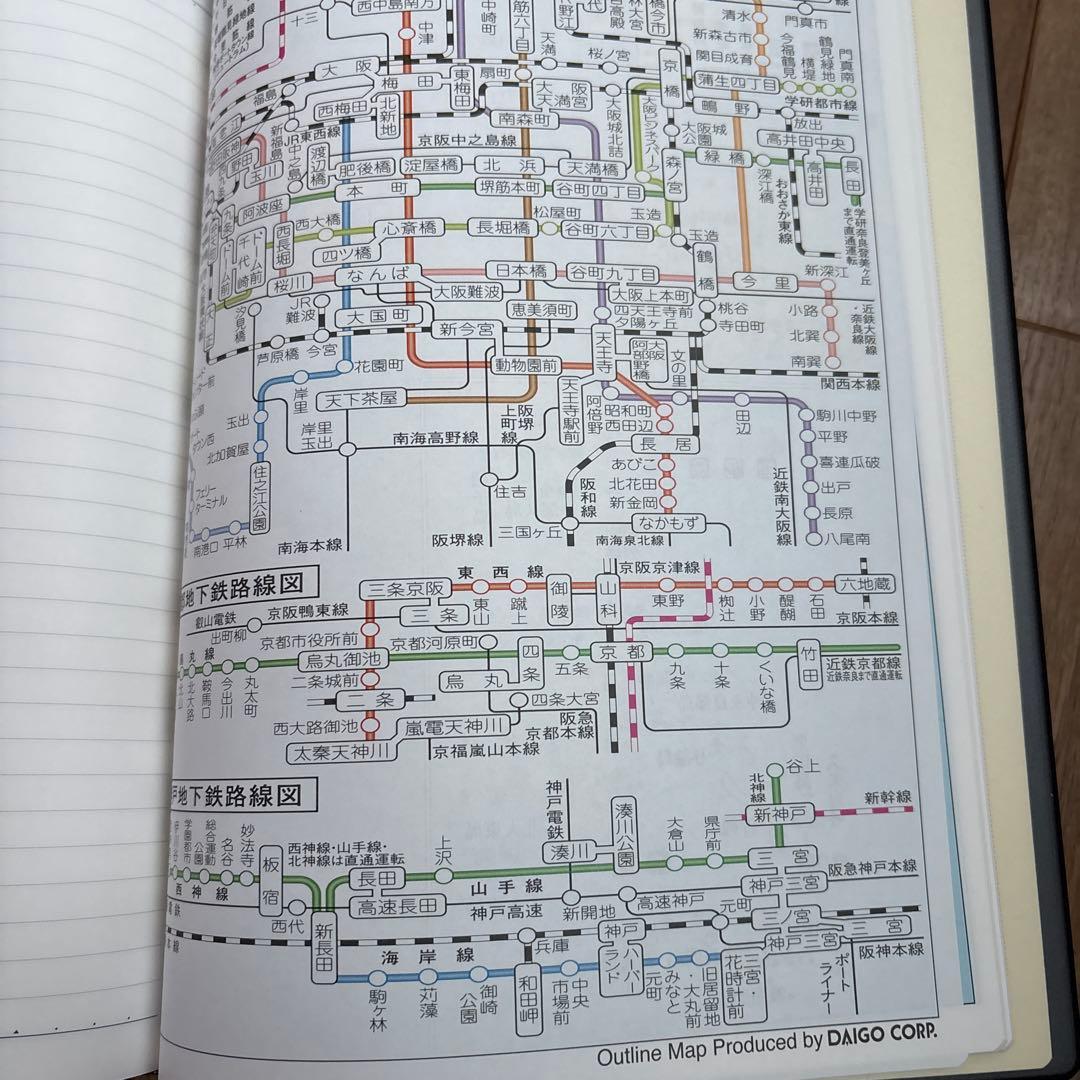 十三
西中島南方
中津
中崎町
筋六丁目
天満
桜ノ宮
京橋
清水
新森古市
関目成育
蒲生四丁目
門真市
今福鶴見
横堤
鶴見緑地
門真南
学研都市線
大阪
梅田
東梅田
扇町
大阪天満宮
福島
西梅田
北新地
南森町
大阪城北詰
大阪ビジネスパーク
鴫野
放出
新福島
JR東西線
中之島
渡辺橋
京阪中之島線
大阪城公園
高井田中央
玉川
肥後橋
淀屋橋
北浜
天満橋
森ノ宮
緑橋
深江橋
高井田
長田
おおさか東線
学研奈良登美ヶ丘まで直通運転
本町
堺筋本町
谷町四丁目
阿波座
西大橋
松屋町
玉造
心斎橋
長堀橋
谷町六丁目
玉造
四ツ橋
西長堀
ドーム前千代崎
鶴橋
桜川
なんば
日本橋
谷町九丁目
今里
新深江
大阪難波
大阪上本町
汐見橋
JR難波
大国町
恵美須町
四天王寺前夕陽ヶ丘
桃谷
寺田町
小路
北巽
南巽
近鉄大阪線・奈良線
芦原橋
今宮
新今宮
天王寺
大阪阿部野橋
文の里
関西本線
花園町
動物園前
岸里
天下茶屋
天王寺駅前
阿倍野
昭和町
西田辺
田辺
駒川中野
玉出
岸里玉出
阪堺上町線
南海高野線
長居
平野
北加賀屋
あびこ
喜連瓜破
住之江公園
住吉
阪和線
北花田
新金岡
近鉄南大阪線
出戸
長原
フェリーターミナル
三国ヶ丘
なかもず
八尾南
南港口
平林
南海本線
阪堺線
南海泉北線
地下鉄路線図
三条京阪
東西線
京阪京津線
三条
東山
蹴上
御陵
山科
東野
椥辻
小野
醍醐
石田
六地蔵
叡山電鉄
京阪鴨東線
出町柳
京阪本線
京都市役所前
京都河原町
烏丸御池
四条
五条
京都
九条
十条
くいな橋
竹田
近鉄京都線
近鉄奈良まで直通運転
北大路
鞍馬口
今出川
丸太町
二条城前
烏丸
二条
四条大宮
西大路御池
嵐電天神川
阪急京都本線
太秦天神川
京福嵐山本線
地下鉄路線図
谷上
北神線
新神戸
新幹線
神戸電鉄
湊川公園
大倉山
県庁前
学園都市
総合運動公園
名谷
妙法寺
西神線・山手線・
北神線は直通運転
上沢
湊川
三宮
阪急神戸本線
西神線
板宿
長田
山手線
神戸三宮
高速長田
神戸高速
新開地
高速神戸
元町
三ノ宮
三宮
西代
新長田
兵庫
神戸
神戸三宮
阪神本線
海岸線
駒ヶ林
苅藻
御崎公園
和田岬
中央市場前
ハーバーランド
みなと元町
旧居留地・大丸前
三宮・花時計前
ポートライナー
Outline Map Produced by DAIGO CORP.